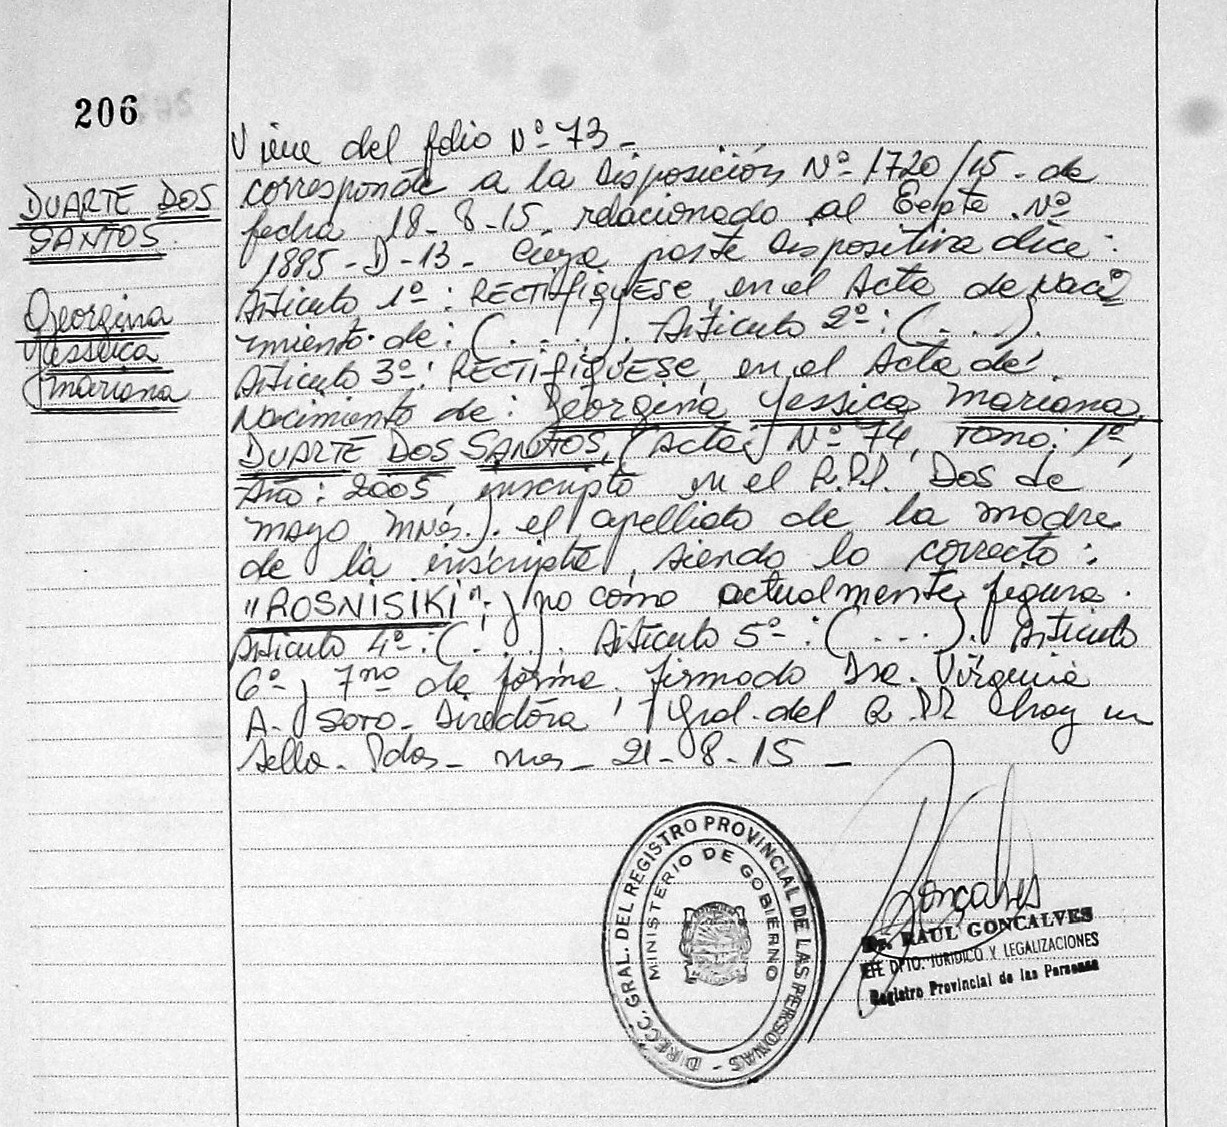 206
DUARTE DOS
SANTOS.
Georgina
Yessica
Mariana
Viene del folio Nº 73 -
corresponde a la Disposición Nº 1720/15 - de
fecha 18-8-15, relacionado al Expte. Nº
1885-D-13- Cuya parte Dispositiva dice:
Artículo 1º: RECTIFIQUESE, en el Acta de Naci
miento de: (. . . .). Artículo 2º: (. . .).
Artículo 3º: RECTIFIQUESE, en el Acta de
Nacimiento de: Georgina Yessica Mariana
DUARTE DOS SANTOS, (Acta Nº 74, Tomo: 1º,
Año: 2005, inscripta en el R.P.P. Dos de
Mayo Mnes.). el apellido de la madre
de la inscripta, siendo lo correcto:
"ROSNISIKI"; y no como actualmente figura.
Artículo 4º: (. . .). Artículo 5º: (. . .). Artículo
6º y 7mo de forma. Firmado Dra. Virginia
A. Soto - Directora Gral. del R.PP. hay un
sello - Pdas - Mnes - 21-8-15 -
DIRECC. GRAL. DEL REGISTRO PROVINCIAL DE LAS PERSONAS -
MINISTERIO DE GOBIERNO
Goncalves
Dr. RAUL GONCALVES
JEFE DPTO. JURIDICO Y LEGALIZACIONES
Registro Provincial de las Personas